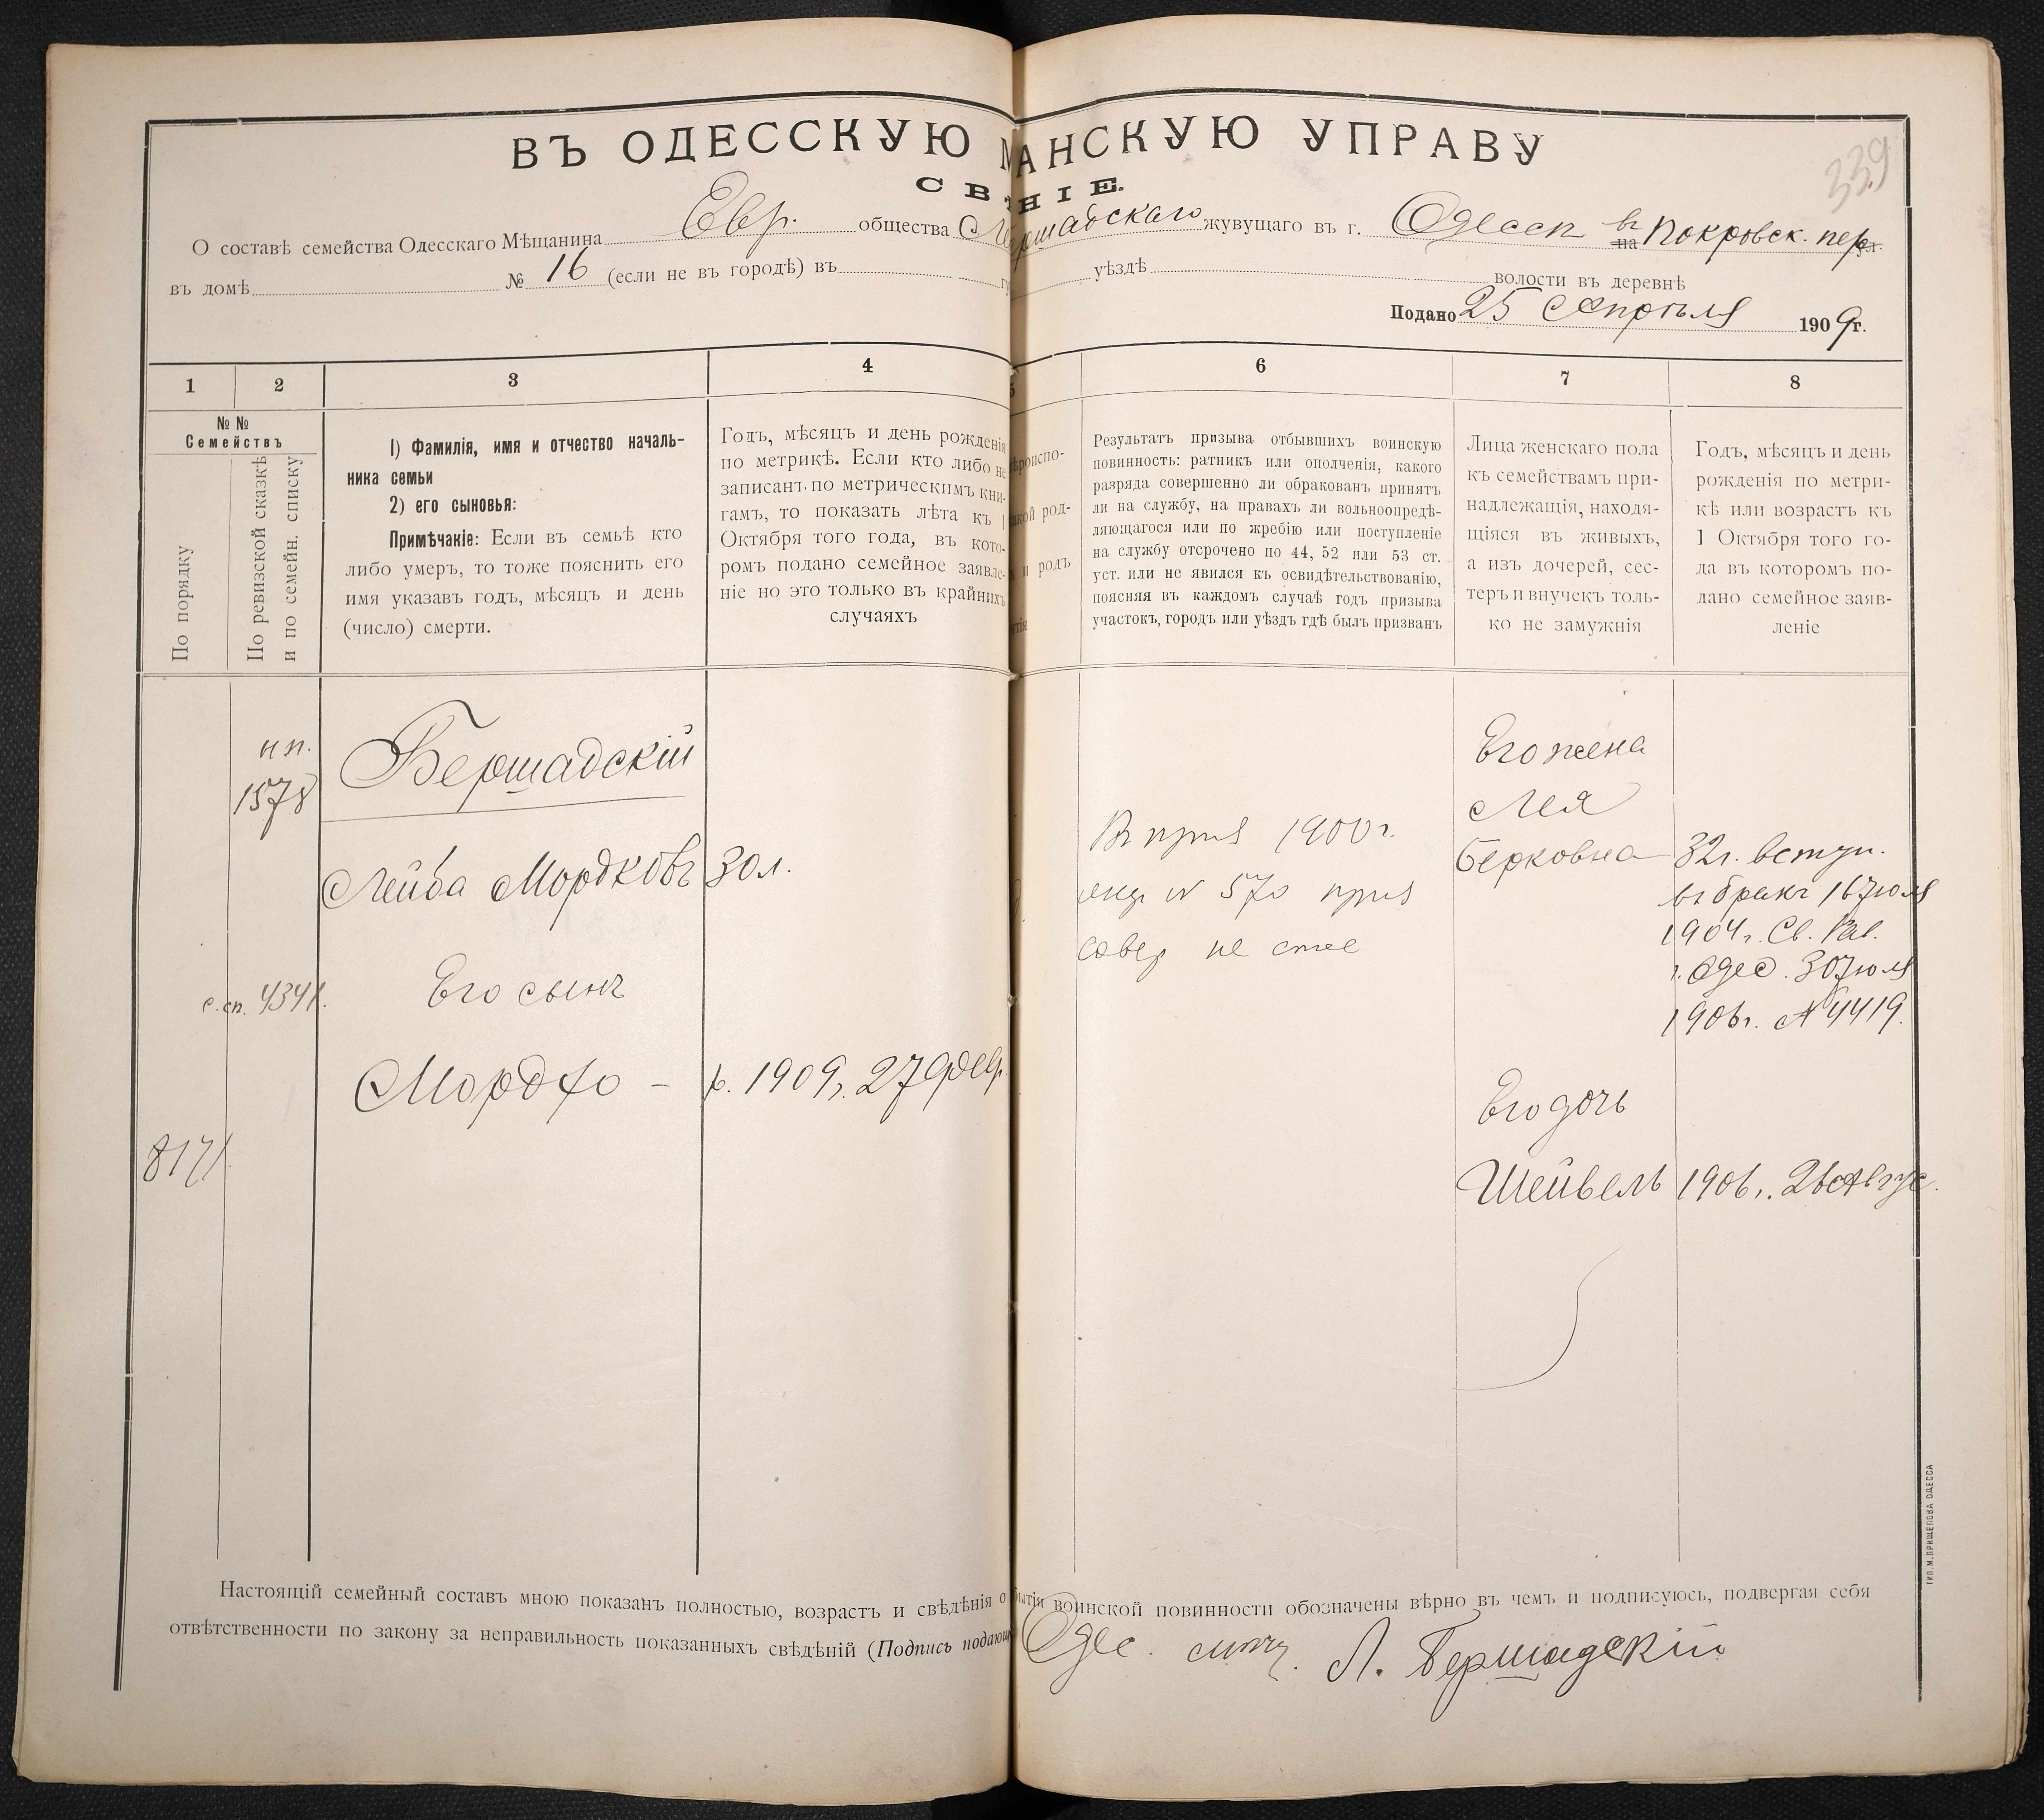 339
ВЪ ОДЕССКУЮ АНСКУЮ УПРАВУ
СВ НІЕ.
О составѣ семейства Одесскаго Мѣщанина Евр. общества жувущаго въ г. Одессѣ въ на Покровск. пер. ул.
въ домѣ № 16 (если не въ городѣ) въ уѣздѣ волости въ деревнѣ
Подано 25 Апрѣля 1909 г.
1 2 3 4 5 6 7 8
№№
Семействъ
По порядку
По ревизской сказкѣ
и по семейн. списку
1) Фамилія, имя и отчество началь-
ника семьи
2) его сыновья:
Примѣчакіе: Если въ семьѣ кто
либо умеръ, то тоже пояснить его
имя указавъ годъ, мѣсяцъ и день
(число) смерти.
Годъ, мѣсяцъ и день рожденія
по метрикѣ. Если кто либо не
записанъ по метрическимъ кни-
гамъ, то показать лѣта къ 1
Октября того года, въ кото-
ромъ подано семейное заявле-
ніе но это только въ крайнихъ
случаяхъ
ѣроиспо-
акой род-
и родъ
Результатъ призыва отбывшихъ воинскую
повинность: ратникъ или ополченія, какого
разряда совершенно ли обракованъ принятъ
ли на службу, на правахъ ли вольноопредѣ-
ляющагося или по жребію или поступленіе
на службу отсрочено по 44, 52 или 53 ст.
уст. или не явился къ освидѣтельствованію,
поясняя въ каждомъ случаѣ годъ призыва
участокъ, городъ или уѣздъ гдѣ былъ призванъ
Лица женскаго пола
къ семействамъ при-
надлежащія, находя-
щіяся въ живыхъ,
а изъ дочерей, сес-
теръ и внучекъ толь-
ко не замужнія
Годъ, мѣсяцъ и день
рожденія по метри-
кѣ или возрастъ къ
1 Октября того го-
да въ которомъ по-
дано семейное заяв-
леніе
нп.
1578
Бершадскій
Лейба Мордковъ 30 л.
с. сп. 4341.
Его сынъ
Мордхо - р. 1909 г. 27 Февр.
8171
1900 г.
№ 570
Его жена
Лея
Берковна 32 г. вступ.
въ бракъ 16 Іюля
1904 г. Св. Рав.
г. Одес. 30 Іюля
1906 г. № 4419.
Его дочь
Шейвель 1906 г. 26 Авгус.
Настоящій семейный составъ мною показанъ полностью, возрастъ и свѣдѣнія о бытіи воинской повинности обозначены вѣрно въ чемъ и подписуюсь, подвергая себя
отвѣтственности по закону за неправильность показанныхъ свѣдѣній (Подпись подающ Одес. Л. Бершадскій
ТИП. М. ПРИЩЕПОВА ОДЕССА